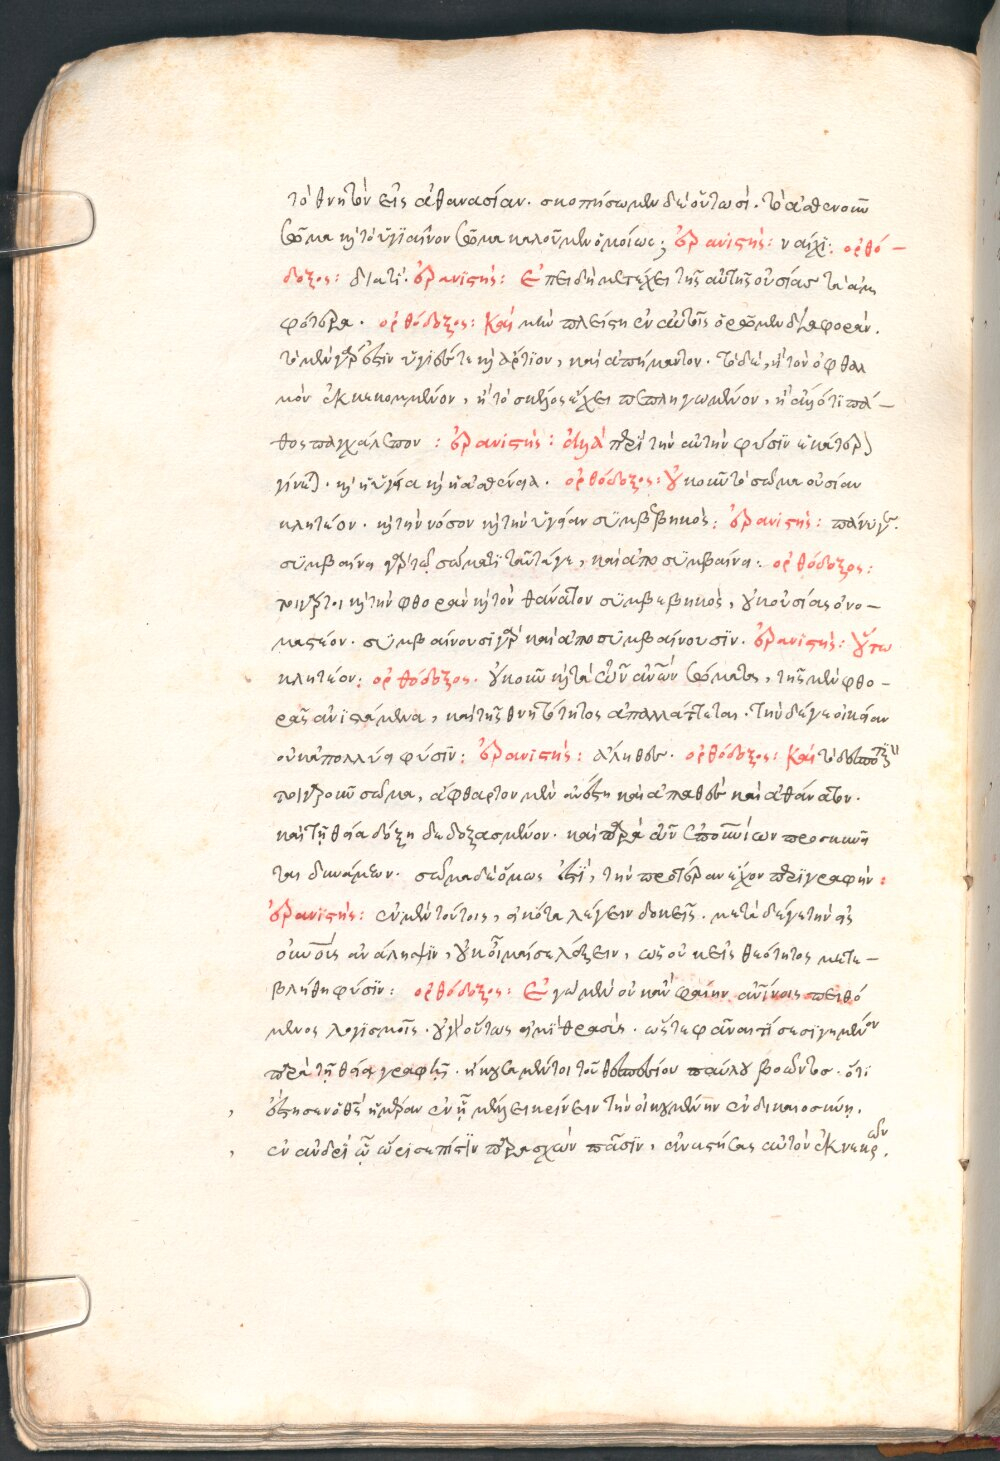 τὸ θνητὸν εἰς ἀθανασίαν. σκοπήσωμεν δὲ οὕτωσί. τὸ ἀσθενοῦν
σῶμα κ τὸ ὑγιαῖνον σῶμα καλοῦμεν ὁμοίως; ἐρανιστής: ναίχι: ορθό–
δοξος: διατί. ἐρανιστής: Ἐπειδὴ μετέχει τῆς αὐτῆς οὐσίας τὰ ἀμ
φότερα. ορθόδοξος: Καὶ μὴν πλείστην ἐν αὐτοῖς ὁρῶμεν διαφοράν.
τὸ μὲν γάρ ἐστιν ὑγιές τε κ ἄρτιον, καὶ ἀπήμαντον. τὸ δὲ, ἢ τὸν ὀφθαλ
μὸν ἐκκεκομμένον, ἢ τὸ σκέλος ἔχει πεπληγωμένον, ἢ ἄλλό τι πά–
θος παγχάλεπον: ἐρανιστής: ἀλλὰ περὶ τὴν αὐτὴν φύσιν ἑκάτερον
γίνεται. κ ἡ ὑγεία κ ἡ ἀσθένεια. ορθόδοξος: Οὐκοῦν τὸ σῶμα οὐσίαν
κλητέον. κ τὴν νόσον κ τὴν ὑγείαν συμβεβηκός: ἐρανιστής: πάνυ γε.
συμβαίνει γὰρ τῷ σώματι ταῦτά γε, καὶ ἀποσυμβαίνει: ορθόδοξος:
τοιγάρτοι κ τὴν φθορὰν κ τὸν θάνατον συμβεβηκὸς, οὐκ οὐσίας ὀνο–
μαστέον. συμβαίνουσι γὰρ καὶ ἀποσυμβαίνουσιν. ἐρανιστής: Οὕτω
κλητέον: ορθόδοξος. Οὐκοῦν κ τὰ τῶν ἀνθρώπων σώματα, τῆς μὲν φθο–
ρᾶς ἀνιστάμενα, καὶ τῆς θνητότητος ἀπαλλάττεται. τὴν δέ γε οἰκείαν
οὐκ ἀπολλύει φύσιν: ἐρανιστής: ἀληθές. ορθόδοξος: Καὶ τὸ δεσποτικὸν
τοιγαροῦν σῶμα, ἄφθαρτον μὲν ἀνέστη καὶ ἀπαθὲς καὶ ἀθάνατον.
καὶ τῇ θείᾳ δόξῃ δεδοξασμένον. καὶ παρὰ τῶν ἐπουρανίων προσκυνεῖ
ται δυνάμεων. σῶμα δὲ ὅμως ἐστὶ, τὴν προτέραν ἔχον περιγραφήν:
ἐρανιστής: ἐν μὲν τούτοις, εἰκότα λέγειν δοκεῖς. μετὰ δέ γε τὴν εἰς
οὐρανοὺς ἀνάληψιν, οὐκ οἶμαί σε λέξειν, ὡς οὐκ εἰς θεότητος μετε–
βλήθη φύσιν: ορθόδοξος: Ἐγὼ μὲν οὐκ ἂν φαίην ἀνθρωπίνοις πειθό
μενος λογισμοῖς. οὐ γὰρ οὕτως εἰμὶ θρασὺς. ὥστε φάναι τί σεσιγημένον
παρὰ τῇ θείᾳ γραφῇ. ἤκουσα μέντοι τοῦ θεσπεσίου παύλου βοῶντος. ὅτι
, ἔστησεν ὁ θς ἡμέραν ἐν ᾗ μέλλει κρίνειν τὴν οἰκουμένην ἐν δικαιοσύνῃ.
, ἐν ἀνδρὶ ᾧ ὥρισε πίστιν παρασχὼν πᾶσιν, ἀναστήσας αὐτὸν ἐκ νεκρῶν.